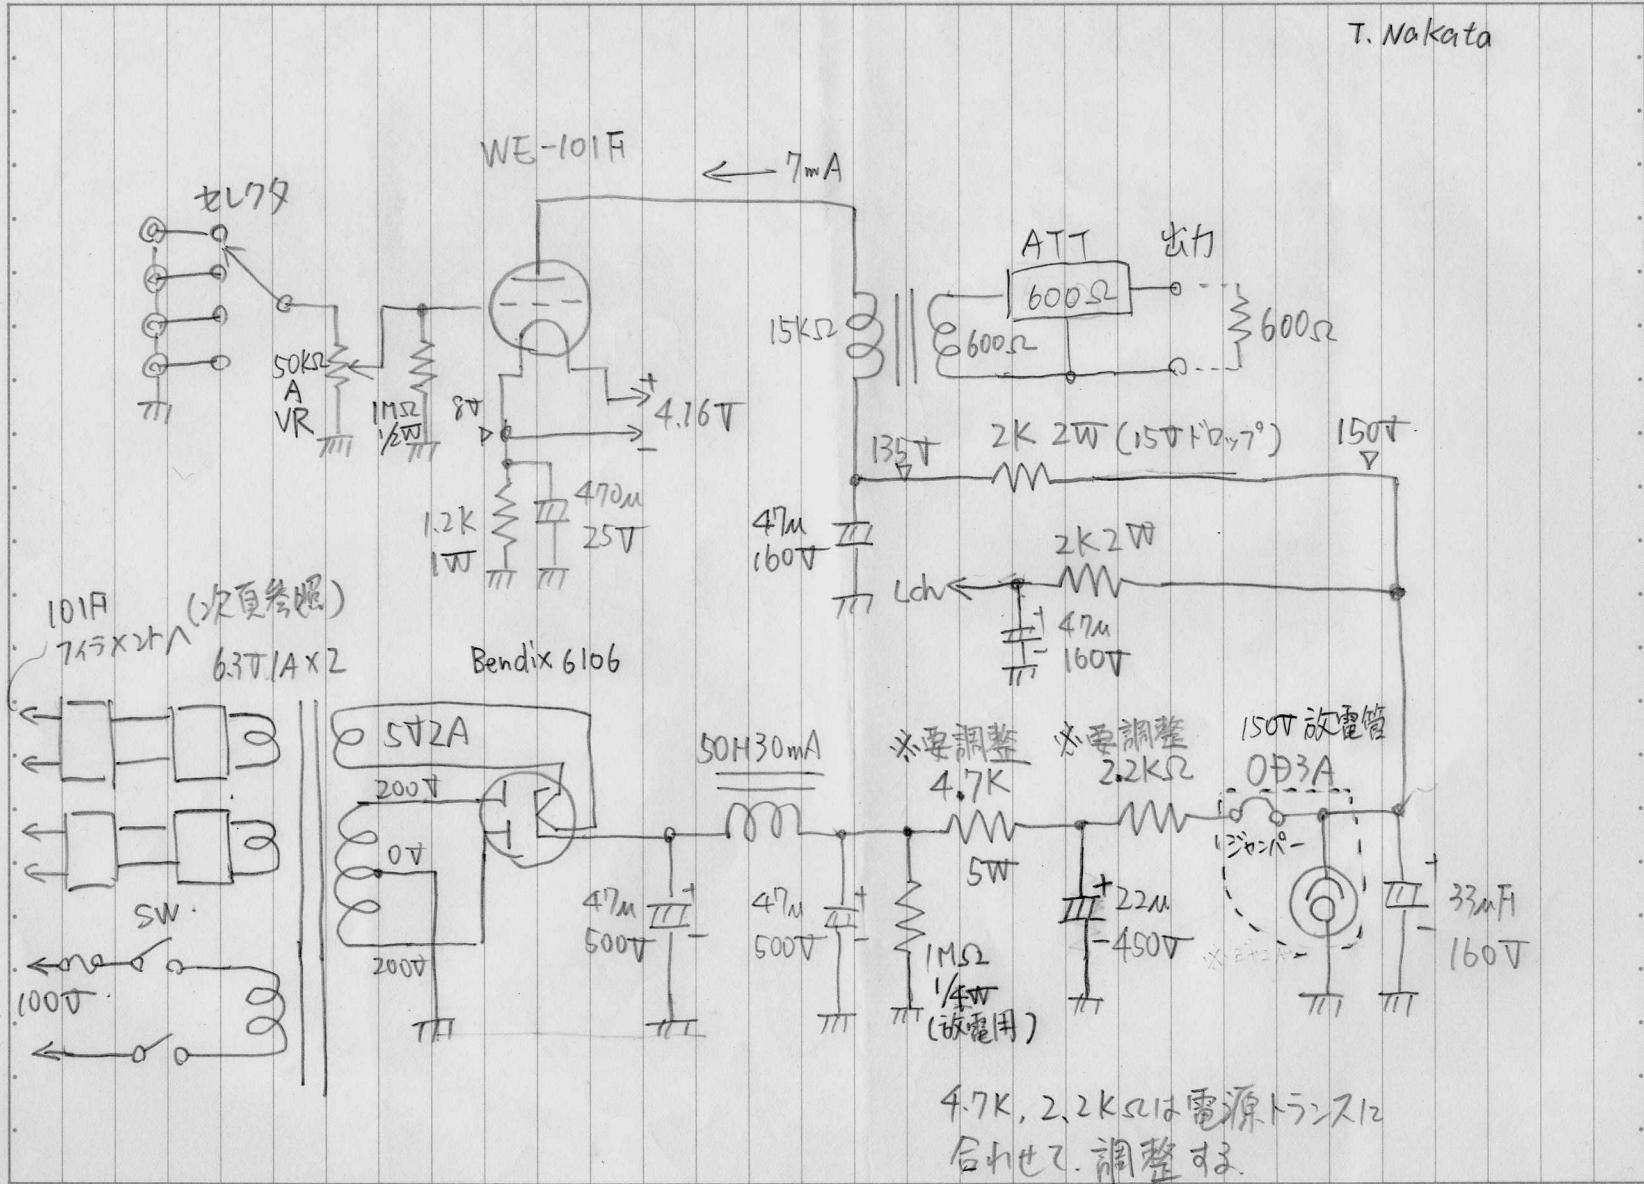 T. Nakata
WE-101F
← 7mA
セレクタ
ATT
出力
600Ω
15KΩ
600Ω
600Ω
50KΩ
A
VR
1MΩ
1/2W
8V
+
4.16V
-
135V
2K 2W (15Vドロップ)
150V
1.2K
1W
470μ
25V
47μ
160V
2K 2W
Lch
+
47μ
-
160V
101F
フィラメントへ
(次頁参照)
6.3V1A×2
Bendix 6106
5V2A
200V
0V
200V
50H30mA
※要調整
4.7K
5W
※要調整
2.2KΩ
150V 放電管
OD3A
ジャンパー
SW
100V
47μ
500V
+
-
47μ
500V
+
-
1MΩ
1/4W
(放電用)
+
22μ
-
450V
+
33μF
-
160V
4.7K, 2.2KΩは電源トランスに
合わせて.調整する.